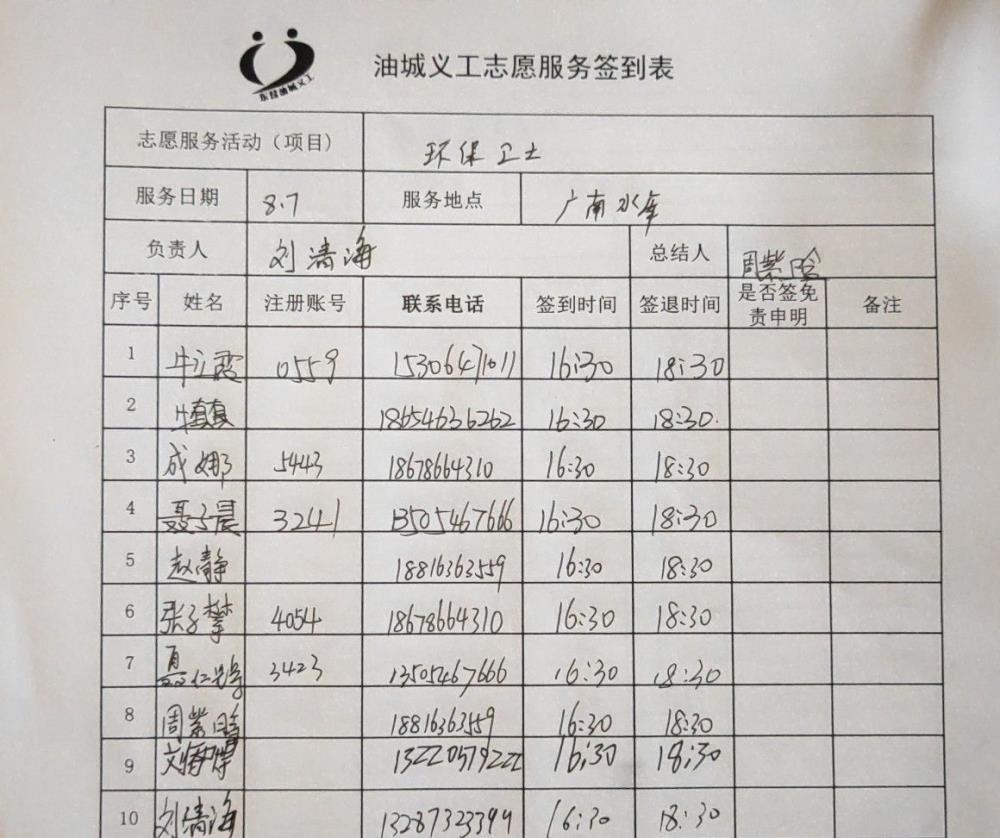 东营油城义工
油城义工志愿服务签到表
志愿服务活动（项目） 环保卫士
服务日期 8.7 服务地点 广南水库
负责人 刘清海 总结人 周紫
序号 姓名 注册账号 联系电话 签到时间 签退时间 是否签免责申明 备注
1 牛立霞 0559 15306471011 16:30 18:30
2 18654636262 16:30 18:30.
3 成娜 5443 18678664310 16:30 18:30
4 聂子晨 3241 13505467666 16:30 18:30
5 赵静 18816363559 16:30 18:30
6 张子攀 4054 18678664310 16:30 18:30
7 聂仁 3423 13505467666 16:30 18:30
8 周紫 18816363559 16:30 18:30
9 13220579222 16:30 18:30
10 刘清海 13287323399 16:30 18:30